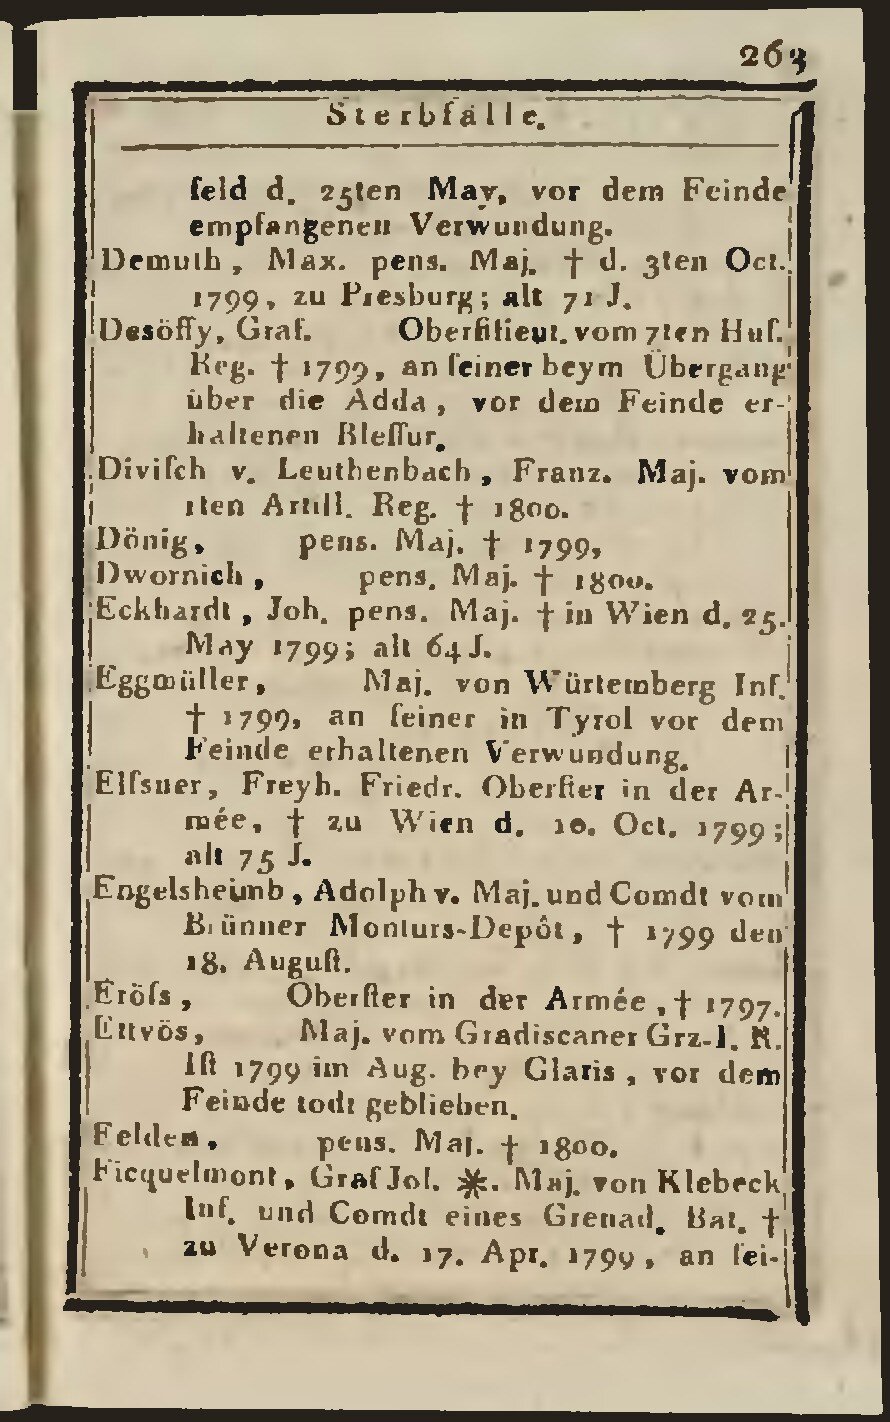 263
Sterbfälle.
feld d. 25ten May, vor dem Feinde
empfangenen Verwundung.
Demuth, Max. pens. Maj. † d. 3ten Oct.
1799, zu Presburg; alt 71 J.
Desöffy, Graf. Oberſtlieut. vom 7ten Huſ.
Reg. † 1799, an ſeiner beym Übergang
über die Adda, vor dem Feinde er-
haltenen Bleſſur.
Diviſch v. Leuthenbach, Franz. Maj. vom
1ten Artill. Reg. † 1800.
Dönig, pens. Maj. † 1799,
Dwornich, pens. Maj. † 1800.
Eckhardt, Joh. pens. Maj. † in Wien d. 25.
May 1799; alt 64 J.
Eggmüller, Maj. von Würtemberg Inf.
† 1799, an ſeiner in Tyrol vor dem
Feinde erhaltenen Verwundung.
Elſsner, Freyh. Friedr. Oberſter in der Ar-
mée, † zu Wien d. 10. Oct. 1799;
alt 75 J.
Engelsheimb, Adolph v. Maj. und Comdt vom
Brünner Monturs-Depôt, † 1799 den
18. Auguſt.
Eröſs, Oberſter in der Armée, † 1797.
Ettvös, Maj. vom Gradiscaner Grz-I. R.
Iſt 1799 im Aug. bey Glaris, vor dem
Feinde todt geblieben.
Felden, pens. Maj. † 1800.
Ficquelmont, Graf Joſ. ✠. Maj. von Klebeck
Inf. und Comdt eines Grenad. Bat. †
zu Verona d. 17. Apr. 1799, an ſei-